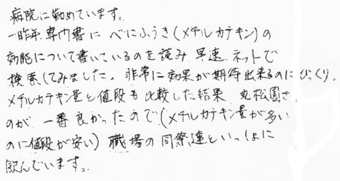 病院に勤めています。
一昨年専門書に べにふうき(メチルカテキン)の
効能について書いているのを読み 早速 ネットで
検索してみました。非常に効果が期待出来るのにびっくり。
メチルカテキン量と値段も比較した結果 丸松園さ
のが 一番良かったので(メチルカテキン量が多い
のに値段が安い) 職場の同僚達といっしょに
飲んでいます。